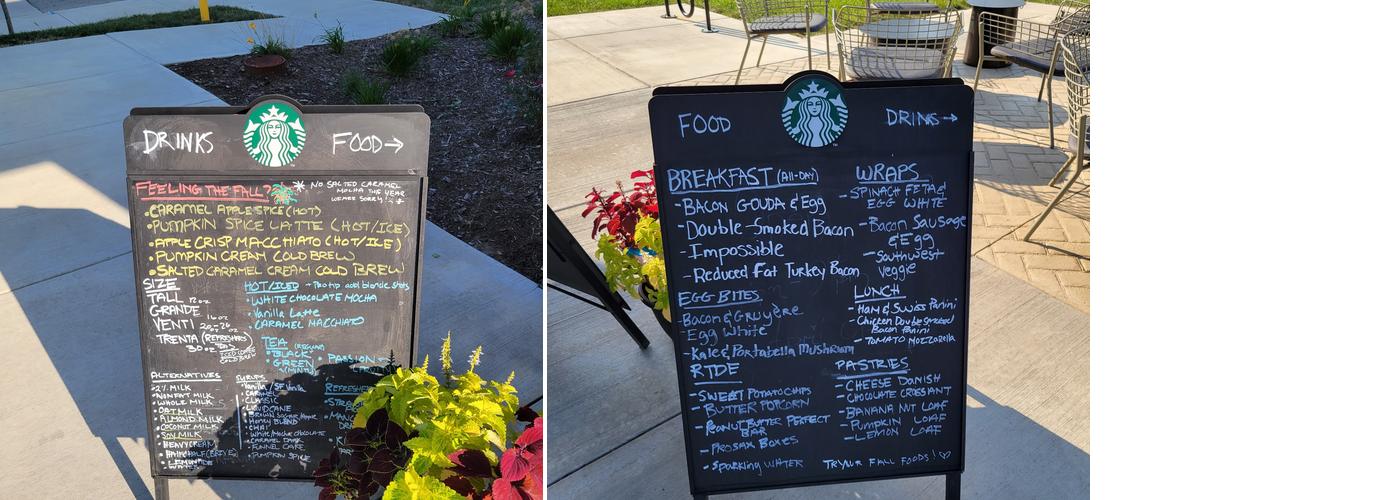 DRINKS
FOOD→
FEELING THE FALL?
* NO SALTED CARAMEL
MOCHA THIS YEAR
WE ARE SORRY!
• CARAMEL APPLE SPICE (HOT)
• PUMPKIN SPICE LATTE (HOT/ICE)
• APPLE CRISP MACCHIATO (HOT/ICE)
• PUMPKIN CREAM COLD BREW
• SALTED CARAMEL CREAM COLD BREW
SIZE
TALL 12oz
GRANDE 16oz
VENTI 20oz-26oz
TRENTA (REFRESHERS)
30oz
ICED COFFEE
COLD BREW
HOT/ICED - Pro tip add blonde shots
• WHITE CHOCOLATE MOCHA
• Vanilla Latte
• CARAMEL MACCHIATO
TEA
• BLACK
• GREEN
(MINT)
• PASSION
ALTERNATIVES
• 2% MILK
• NONFAT MILK
• WHOLE MILK
• OAT MILK
• ALMOND MILK
• COCONUT MILK
• SOY MILK
• HEAVY CREAM
• HALF&HALF (BREVE)
• LEMONADE
WATER
SYRUPS
• Vanilla / SF Vanilla
• CARAMEL
• CLASSIC
• LIQUID CANE
• HONEY BLEND
• CHAI
• White/Mocha chocolate
• CARAMEL DARK
• FUNNEL CAKE
• PUMPKIN SPICE
REFRESHERS
FOOD
DRINKS→
BREAKFAST (All-DAY)
- BACON GOUDA & Egg
- Double-Smoked Bacon
- Impossible
- Reduced Fat Turkey Bacon
EGG BITES
- Bacon & Gruyère
- Egg White
- Kale & Portabella Mushroom
RTDE
- SWEET POTATO CHIPS
- BUTTER POPCORN
- PEANUT BUTTER PERFECT
BAR
- PROSNAX Boxes
- Sparkling WATER
WRAPS
- SPINACH FETA &
EGG WHITE
- Bacon Sausage
& Egg
- Southwest
Veggie
LUNCH
- HAM & SWISS Panini
- Chicken Double Smoked
Bacon Panini
- TOMATO MOZZARELLA
PASTRIES
- CHEESE DANISH
- CHOCOLATE CROISSANT
- BANANA NUT LOAF
- PUMPKIN LOAF
- LEMON LOAF
TRY OUR FALL FOODS! ♡